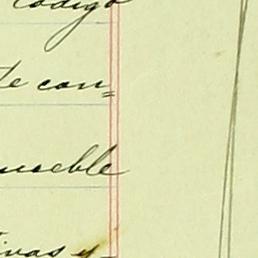 Codigo
de con=
mueble
ivas y